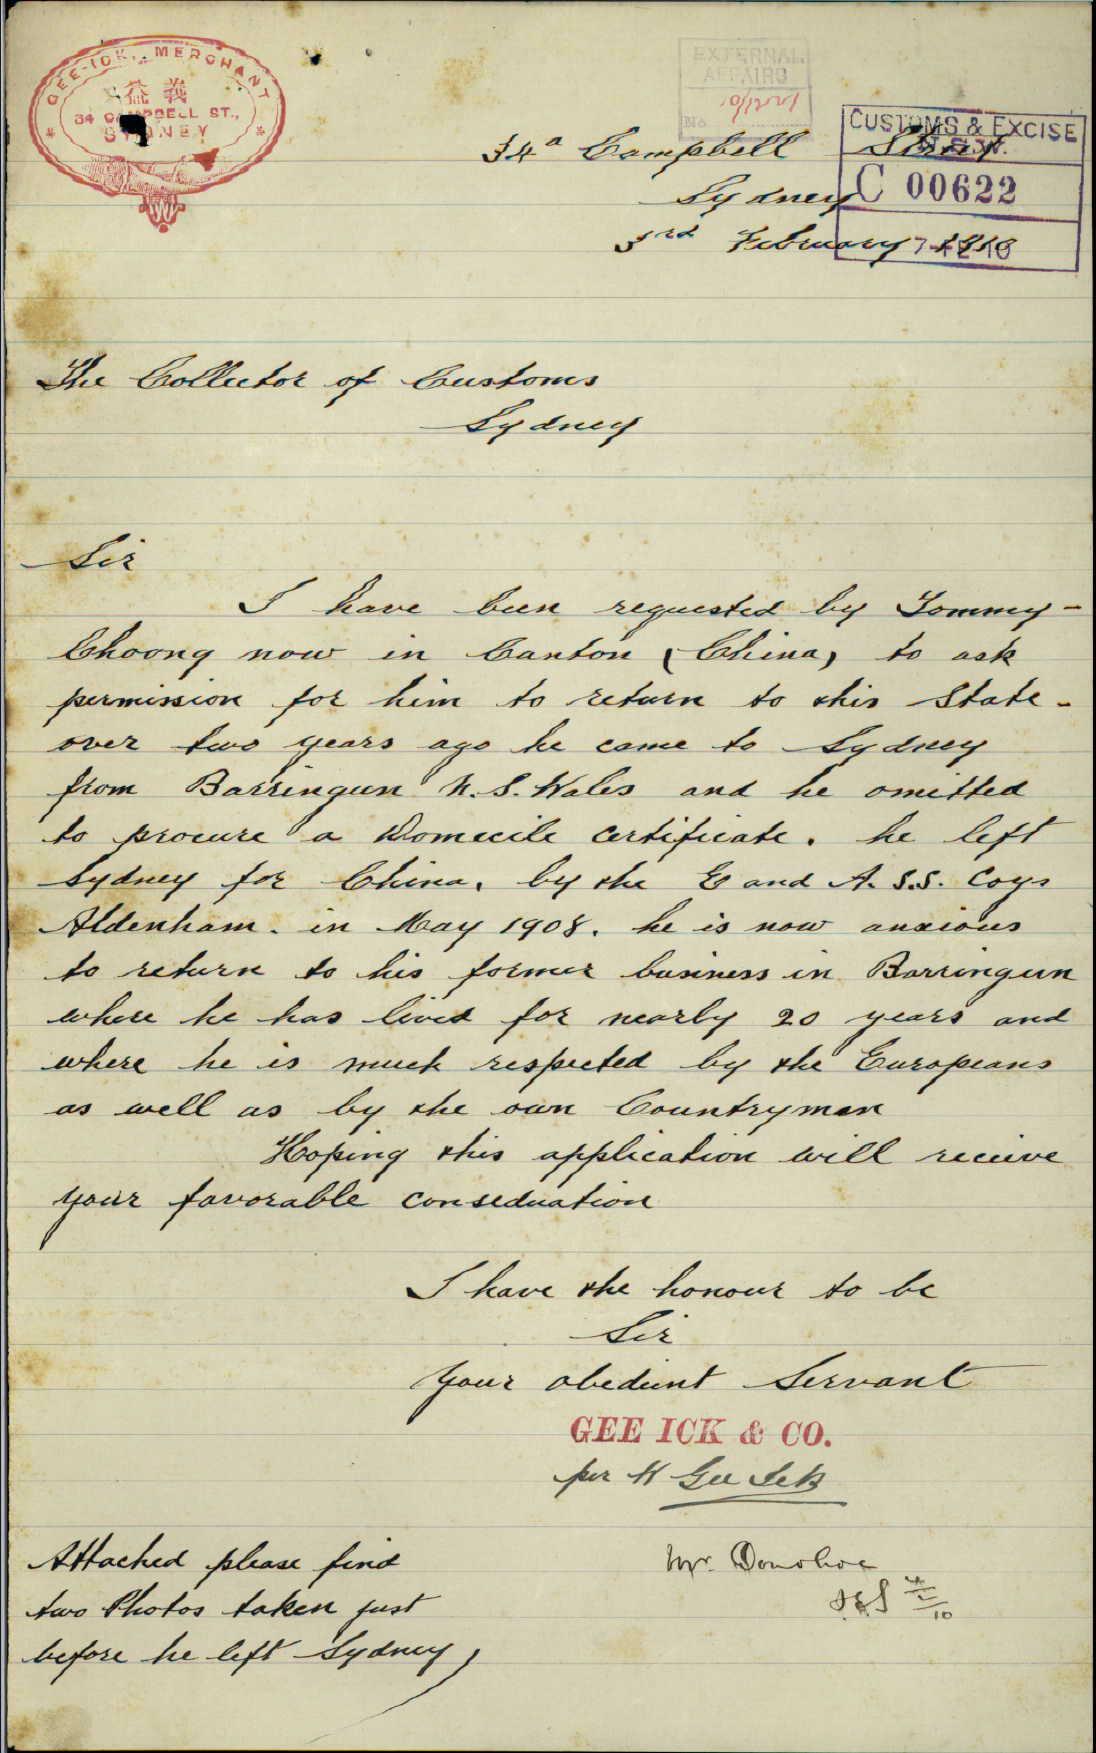 GEE-ICK, MERCHANT
益 義
34 CAMPBELL ST.,
SYDNEY
EXTERNAL
AFFAIRS
No.
CUSTOMS & EXCISE
N.S.W.
C 00622
34a Campbell Street
Sydney
3rd February 1910
The Collector of Customs
Sydney
Sir
I have been requested by Tommy-
Choong now in Canton (China) to ask
permission for him to return to this State -
over two years ago he came to Sydney
from Barringun N.S. Wales and he omitted
to procure a Domecile certificate. he left
Sydney for China. by the E and A. S.S. Coys
Aldenham. in May 1908. he is now anxious
to return to his former business in Barringun
where he has lived for nearly 20 years and
where he is much respected by the Europeans
as well as by the own Countrymen
Hoping this application will receive
your favorable consideration
I have the honour to be
Sir
Your obedient Servant
GEE ICK & CO.
per H Gee Ick
Attached please find
two Photos taken just
before he left Sydney
Mr. Donohoe